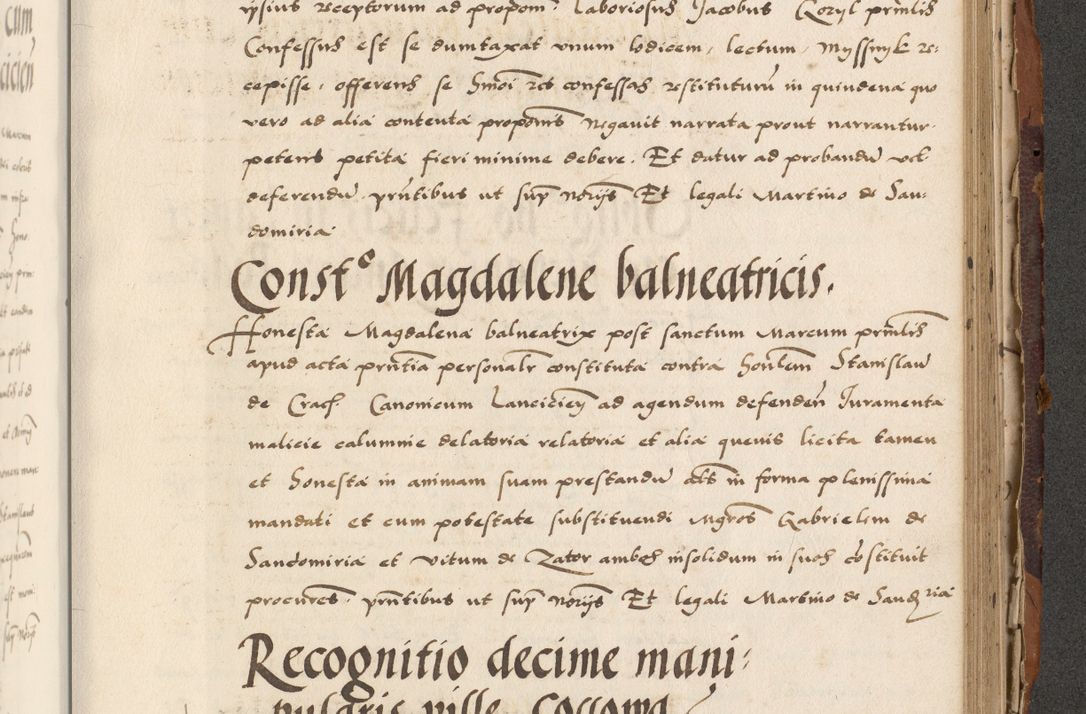 ipsius receptorum ad propom̄ Laboriosus Jacobus Kozyl prnlis
Confessus est se dumtaxat unum lodicem, lectum, Myssnyk re:
cepisse, offerens se hm̄oi res confessas restituturū in quindena quo
vero ad alia contenta propōnis Negavit narrata prout narrantur
petens petita fieri minime debere. Et datur ad probandū vel
deferendū. prn̄tibus ut sup̄ nōrijs Et legali Martino de San:
domiria
Const° Magdalene balneatricis.
Honesta Magdalena balneatrix post sanctum Marcum prn̄lis
apud acta prn̄tia personalr constituta contra honlem Stanislaū
de Crac. Canonicum Lancicień ad agendum defendeñ Juramenta
malicie calumnie delatoria relatoria et alia quevis licita tamen
et honesta in animam suam prestandū alt̄s in forma plenissima
mandati et cum potestate substituendi Mgros Gabrielem de
Sandomiria et Vitum de Zator ambos insolidum in suos cōstituit
procures. prn̄tibus ut sup̄ nōrijs Et legali Martino de Sandꝫria
Recognitio decime mani:
pularis ville Cossowa